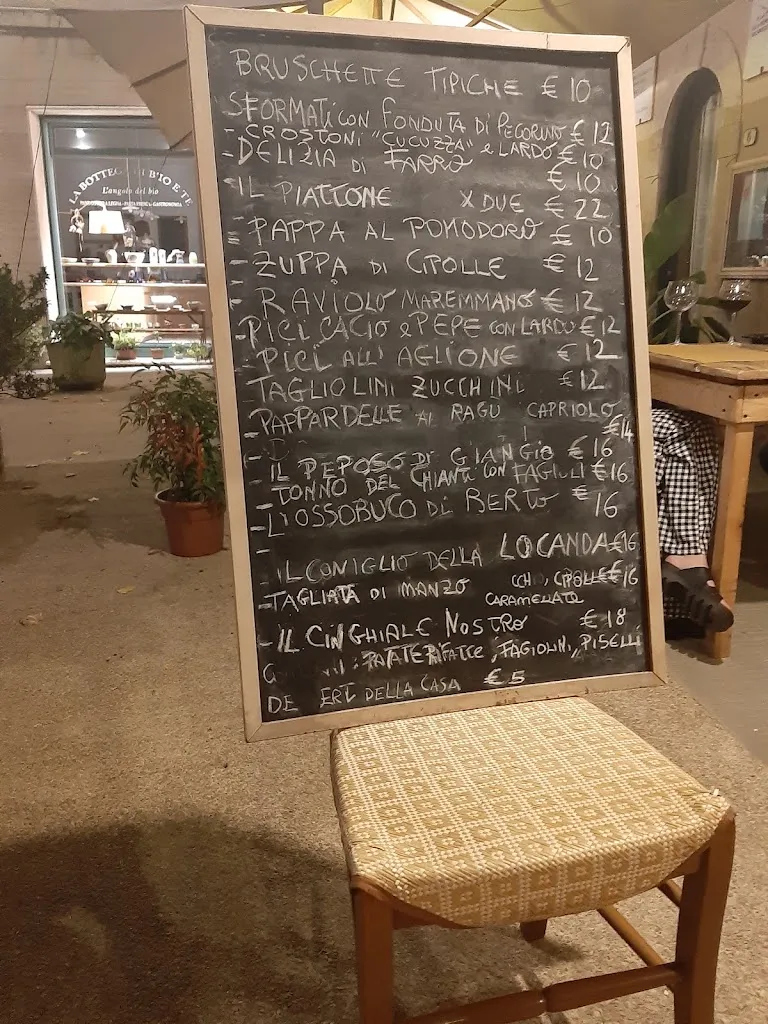 LA BOTTEG DI BIO E TE
L'angolo del bio
BRUSCHETTE TIPICHE € 10
SFORMATI CON FONDUTA DI PECORINO € 12
- CROSTONI "CUCUZZA" e LARDO € 10
- DELIZIA DI FARRO € 10
- IL PIATTONE X DUE € 22
- PAPPA AL POMODORO € 10
- ZUPPA DI CIPOLLE € 12
- RAVIOLO MAREMMANO € 12
- PICI CACIO e PEPE CON LARDO € 12
- PICI ALL'AGLIONE € 12
- TAGLIOLINI ZUCCHINE € 12
- PAPPARDELLE AL RAGU CAPRIOLO
€14
- IL PEPOSO DI GIANGIO € 16
- TONNO DEL CHIANTI CON FAGIOLI €16
- L'OSSOBUCO DI BERTO € 16
- IL CONIGLIO DELLA LOCANDA €16
- TAGLIATA DI MANZO CIPOLLE €16
CARAMELLATE
- IL CINGHIALE NOSTRO € 18
: PATATE FATTE, FAGIOLINI, PISELLI
DE ERT DELLA CASA € 5